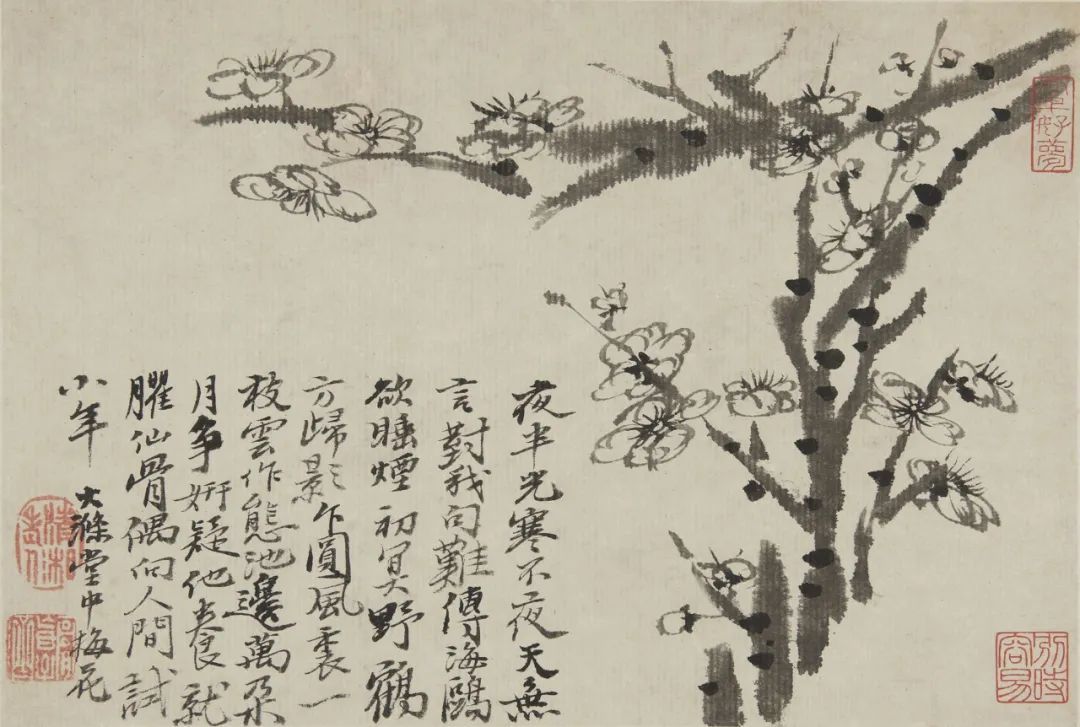 夜半光寒不夜天無
言對我句難傳海鷗
欲睡煙初冥野鶴
方歸影乍圓風裹一
枝雲作態池邊萬朵
月爭妍疑他養就
臞仙骨偶向人間試
小年
大滌堂中梅花
清湘老人
好夢
別時容易